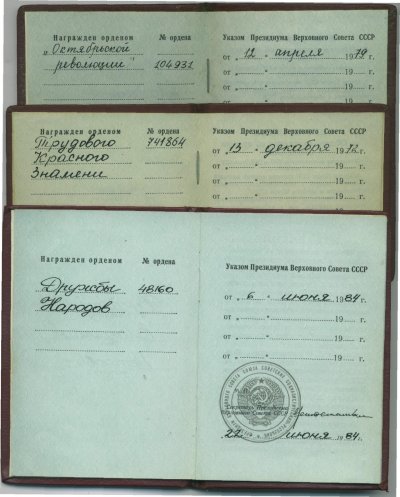 Награжден орденом № ордена Указом Президиума Верховного Совета СССР
„Октябрьской
революции" 104931 от „ 12 " апреля 1979 г.
от „ " 19 г.
19
Награжден орденом № ордена Указом Президиума Верховного Совета СССР
Трудового 741864 от „ 13 " декабря 1972 г.
Красного от „ " 19 г.
Знамени от „ " 19 г.
19
Награжден орденом № ордена Указом Президиума Верховного Совета СССР
Дружбы 48160 от „ 6 " июня 1984 г.
Народов от „ " 19 г.
от „ " 19 г.
от „ " 19 г.
Секретарь Президиума
Верховного Совета СССР
„ 22 " июня 1984 г.